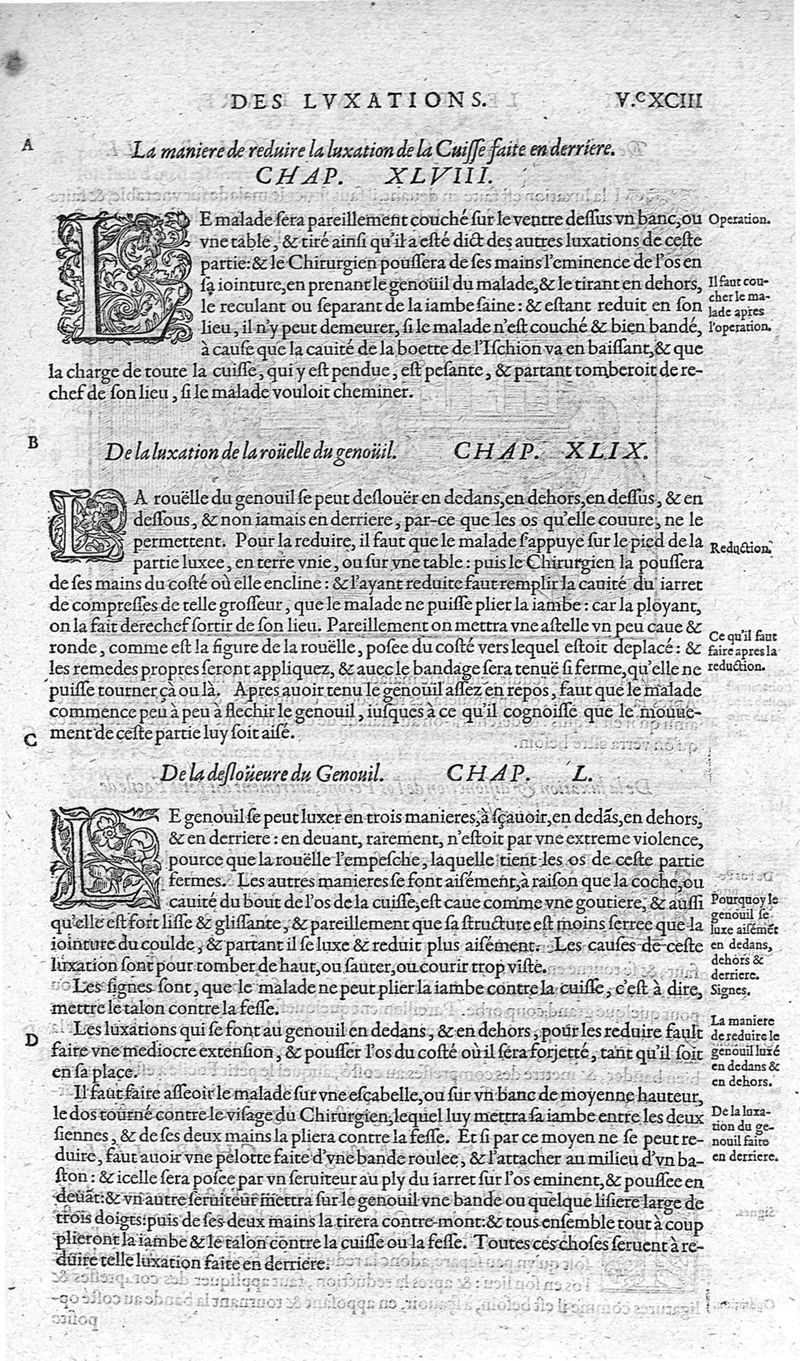 DES LVXATIONS. V.ᶜXCIII
A
La maniere de reduire la luxation de la Cuisse faite en derriere.
CHAP. XLVIII.
LE malade sera pareillement couché sur le ventre dessus vn banc, ou
vne table, & tiré ainsi qu'il a esté dict des autres luxations de ceste
partie: & le Chirurgien poussera de ses mains l'eminence de l'os en
sa iointure, en prenant le genoüil du malade, & le tirant en dehors,
le reculant ou separant de la iambe saine: & estant reduit en son
lieu, il n'y peut demeurer, si le malade n'est couché & bien bandé,
à cause que la cauité de la boette de l'Ischion va en baissant, & que
la charge de toute la cuisse, qui y est pendue, est pesante, & partant tomberoit de re-
chef de son lieu, si le malade vouloit cheminer.
Operation.
Il faut cou-
cher le ma-
lade apres
l'operation.
B
De la luxation de la roüelle du genoüil. CHAP. XLIX.
LA rouëlle du genouil se peut deslouër en dedans, en dehors, en dessus, & en
dessous, & non iamais en derriere, par-ce que les os qu'elle couure, ne le
permettent. Pour la reduire, il faut que le malade s'appuye sur le pied de la
partie luxee, en terre vnie, ou sur vne table: puis le Chirurgien la poussera
de ses mains du costé où elle encline: & l'ayant reduite faut remplir la cauité du iarret
de compresses de telle grosseur, que le malade ne puisse plier la iambe: car la ployant,
on la fait derechef sortir de son lieu. Pareillement on mettra vne astelle vn peu caue &
ronde, comme est la figure de la rouëlle, posee du costé vers lequel estoit deplacé: &
les remedes propres seront appliquez, & auec le bandage sera tenuë si ferme, qu'elle ne
puisse tourner çà ou là. Apres auoir tenu le genouil assez en repos, faut que le malade
commence peu à peu à flechir le genouil, iusques à ce qu'il cognoisse que le mouue-
ment de ceste partie luy soit aisé.
Reduction.
Ce qu'il faut
faire apres la
reduction.
C
De la desloüeure du Genouil. CHAP. L.
LE genouil se peut luxer en trois manieres, à sçauoir, en dedãs, en dehors,
& en derriere: en deuant, rarement, n'estoit par vne extreme violence,
pource que la rouëlle l'empesche, laquelle tient les os de ceste partie
fermes. Les autres manieres se font aisément, à raison que la coche, ou
cauité du bout de l'os de la cuisse, est caue comme vne goutiere, & aussi
qu'elle est fort lisse & glissante, & pareillement que sa structure est moins serree que la
iointure du coulde, & partant il se luxe & reduit plus aisément. Les causes de ceste
luxation sont pour tomber de haut, ou sauter, ou courir trop viste.
Les signes sont, que le malade ne peut plier la iambe contre la cuisse, c'est à dire,
mettre le talon contre la fesse.
Pourquoy le
genouil se
luxe aisémẽt
en dedans,
dehors &
derriere.
Signes.
D
Les luxations qui se font au genouil en dedans, & en dehors, pour les reduire fault
faire vne mediocre extension, & pousser l'os du costé où il sera forjetté, tant qu'il soit
en sa place.
Il faut faire asseoir le malade sur vne esçabelle, ou sur vn banc de moyenne hauteur,
le dos tourné contre le visage du Chirurgien, lequel luy mettra sa iambe entre les deux
siennes, & de ses deux mains la pliera contre la fesse. Et si par ce moyen ne se peut re-
duire, faut auoir vne pelotte faite d'vne bande roulee, & l'attacher au milieu d'vn ba-
ston: & icelle sera posee par vn seruiteur au ply du iarret sur l'os eminent, & poussee en
deuãt: & vn autre seruiteur mettra sur le genouil vne bande ou quelque lisiere large de
trois doigts: puis de ses deux mains la tirera contre-mont: & tous ensemble tout à coup
plieront la iambe & le talon contre la cuisse ou la fesse. Toutes ces choses seruent à re-
duire telle luxation faite en derriere.
La maniere
de reduire le
genouil luxé
en dedans &
en dehors.
De la luxa-
tion du ge-
nouil faite
en derriere.